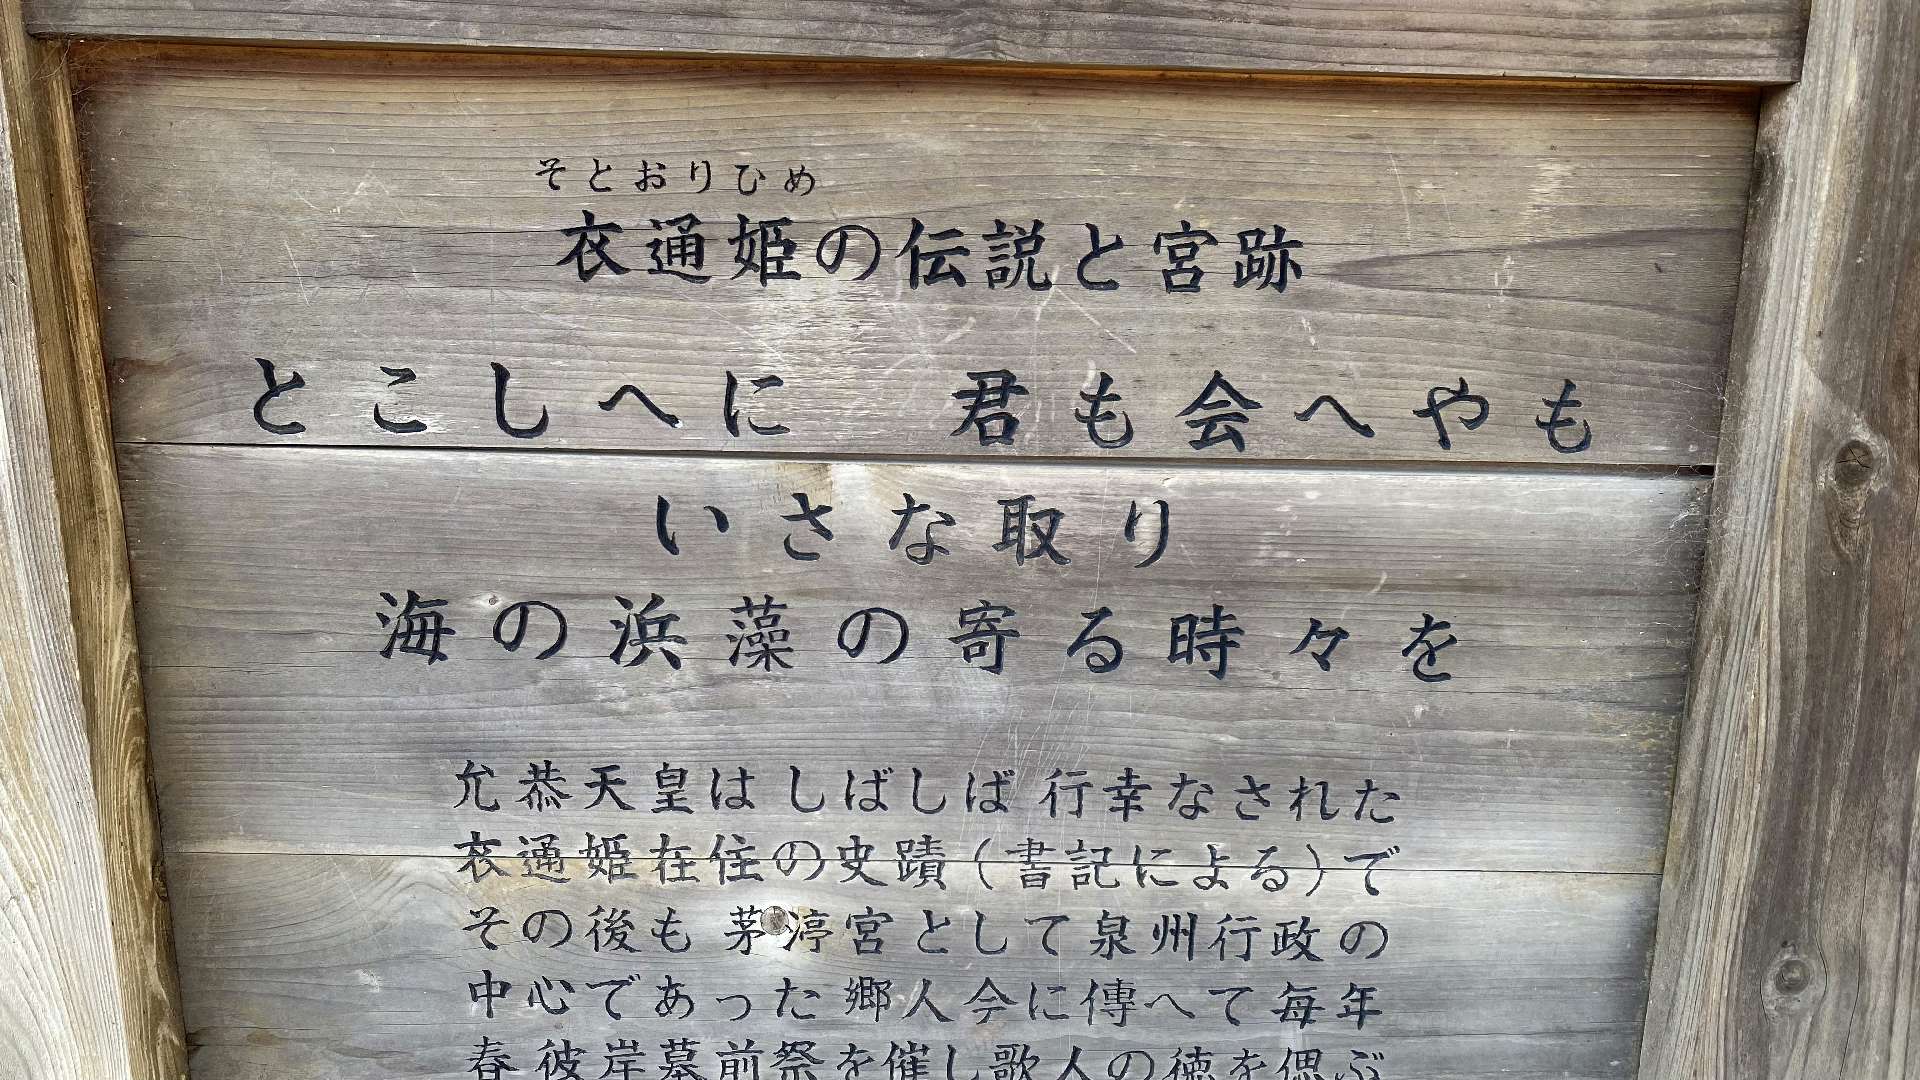 そとおりひめ
衣通姫の伝説と宮跡
とこしへに　君も会へやも
いさな取り
海の浜藻の寄る時々を
允恭天皇はしばしば行幸なされた
衣通姫在住の史蹟(書記による)で
その後も茅渟宮として泉州行政の
中心であった郷人今に傳へて毎年
春彼岸墓前祭を催し歌人の徳を偲ぶ